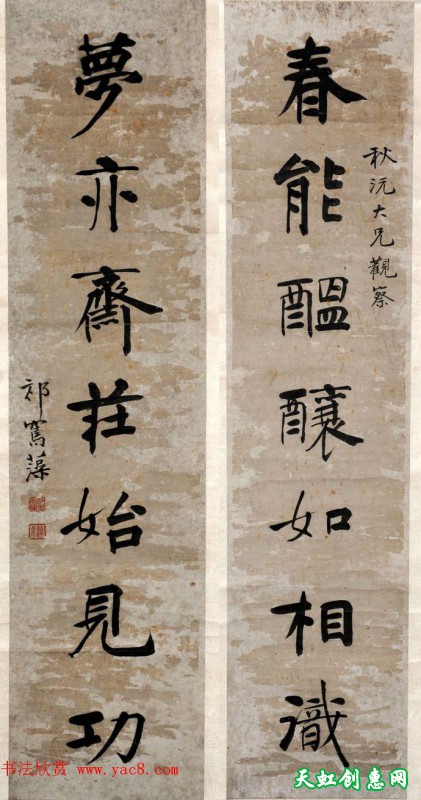 春能醞釀如相識
秋沅大兄觀察
夢亦齋莊始見功
祁寯藻
书法欣赏 www.yac8.com
天虹创惠网